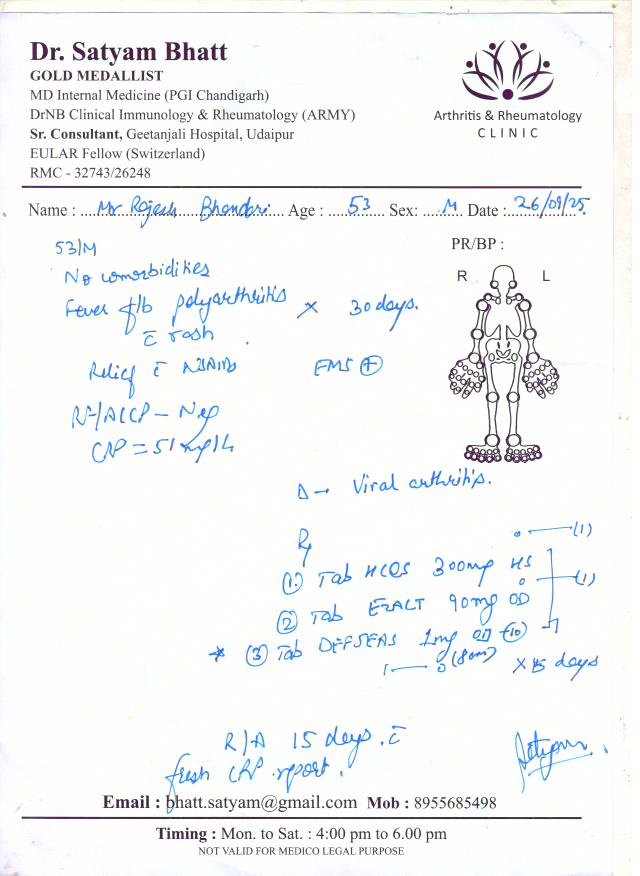 Dr. Satyam Bhatt
GOLD MEDALLIST
MD Internal Medicine (PGI Chandigarh)
DrNB Clinical Immunology & Rheumatology (ARMY)
Sr. Consultant, Geetanjali Hospital, Udaipur
EULAR Fellow (Switzerland)
RMC - 32743/26248
Arthritis & Rheumatology
CLINIC
Name : Mr Rajesh Bhandari Age : 53 Sex: M Date : 26/09/25
PR/BP :
R L
53/M
No comorbidities
Fever f/b polyarthritis x 30 days.
c̄ rash
Relief c̄ NSAIDs EMS (+)
RF/ACCP - Neg
CRP = 51 mg/L
Δ → Viral arthritis.
Rx
(1)
(1.) Tab HCQS 300mg HS
(1)
(2) Tab EZACT 90mg OD
* (3) Tab DEFSEAS 1mg OD (10)
1 — 0 (8am) x 15 days
R/A 15 days c̄
fresh CRP report.
Email : bhatt.satyam@gmail.com Mob : 8955685498
Timing : Mon. to Sat. : 4:00 pm to 6.00 pm
NOT VALID FOR MEDICO LEGAL PURPOSE